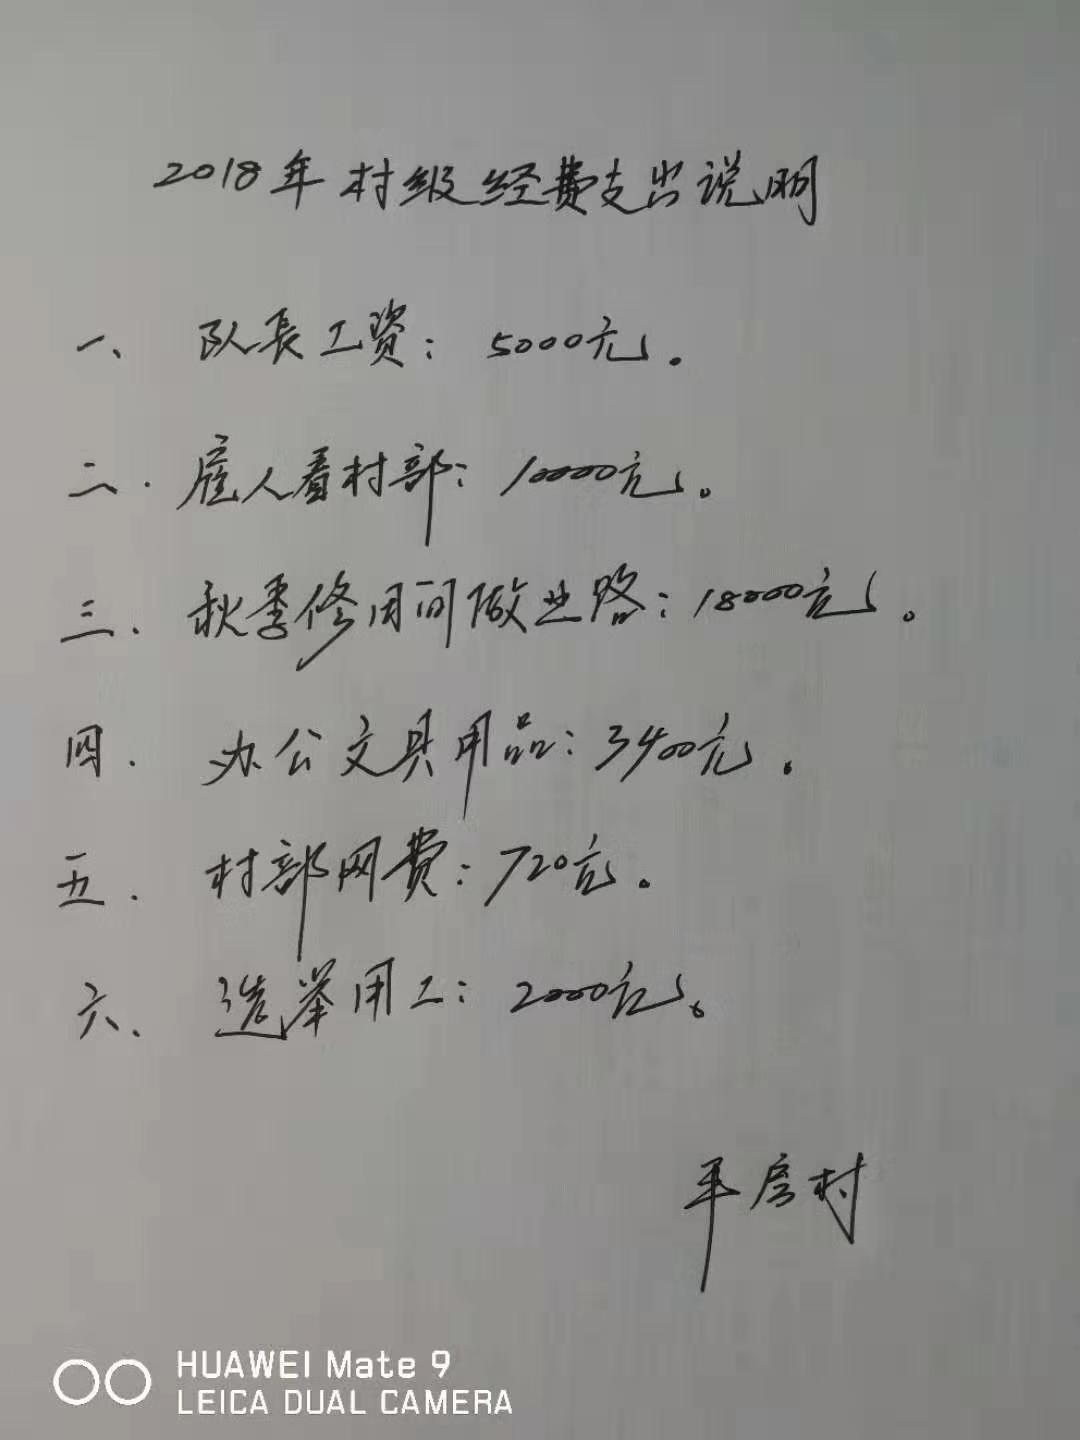 2018年村级经费支出说明
一、队长工资：5000元。
二.雇人看村部：10000元。
三.秋季修田间做业路：18000元。
四.办公文具用品：3400元。
五.村部网费：720元。
六、选举用工：2000元。
平房村
HUAWEI Mate 9
LEICA DUAL CAMERA